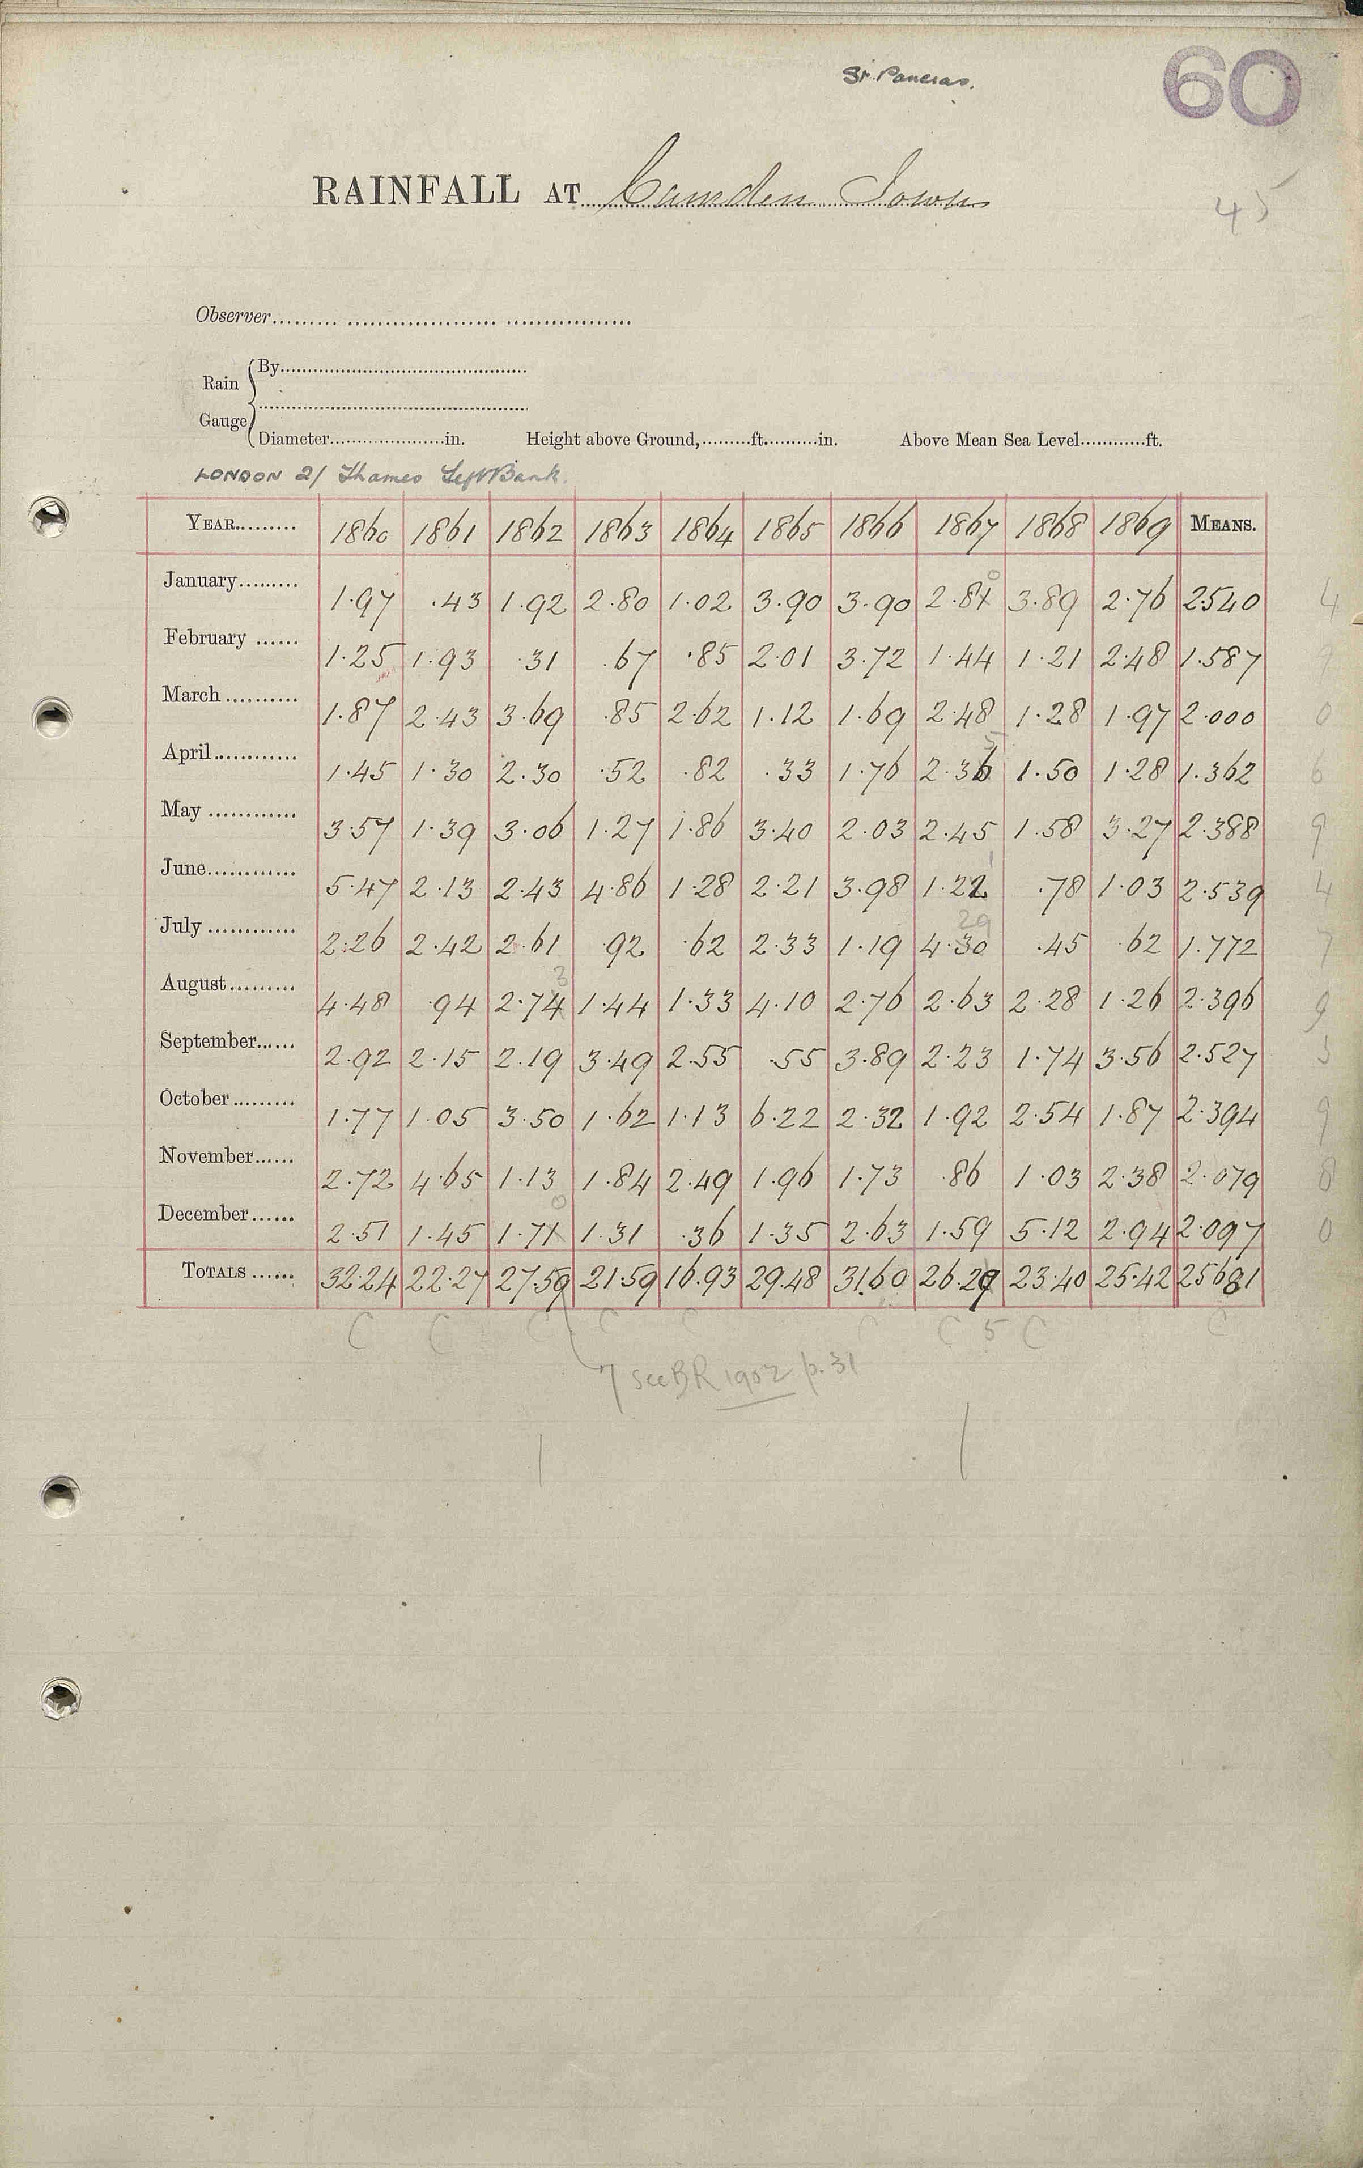 St. Pancras.
60
RAINFALL AT Camden Town
45
Observer
Rain Gauge
By
Diameter in. Height above Ground, ft. in. Above Mean Sea Level ft.
LONDON 2/ Thames Left Bank.
YEAR 1860 1861 1862 1863 1864 1865 1866 1867 1868 1869 MEANS.
January 1.97 .43 1.92 2.80 1.02 3.90 3.90 2.81 0 3.89 2.76 2.540 4
February 1.25 1.93 .31 .67 .85 2.01 3.72 1.44 1.21 2.48 1.587
March 1.87 2.43 3.69 .85 2.62 1.12 1.69 2.48 1.28 1.97 2.000 0
April 1.45 1.30 2.30 .52 .82 .33 1.76 2.36 5 1.50 1.28 1.362 6
May 3.57 1.39 3.06 1.27 1.86 3.40 2.03 2.45 1.58 3.27 2.388 9
June 5.47 2.13 2.43 4.86 1.28 2.21 3.98 1.22 1 .78 1.03 2.539 4
July 2.26 2.42 2.61 .92 .62 2.33 1.19 4.30 29 .45 .62 1.772 7
August 4.48 .94 2.74 3 1.44 1.33 4.10 2.76 2.63 2.28 1.26 2.396 9
September 2.92 2.15 2.19 3.49 2.55 .55 3.89 2.23 1.74 3.56 2.527 5
October 1.77 1.05 3.50 1.62 1.13 6.22 2.32 1.92 2.54 1.87 2.394 9
November 2.72 4.65 1.13 1.84 2.49 1.96 1.73 .86 1.03 2.38 2.079 8
December 2.51 1.45 1.71 0 1.31 .36 1.35 2.63 1.59 5.12 2.94 2.097 0
TOTALS 32.24 22.27 27.59 21.59 16.93 29.48 31.60 26.29 23.40 25.42 25.681
C C C C C C C 5 C C
7 see BR 1902 p. 31